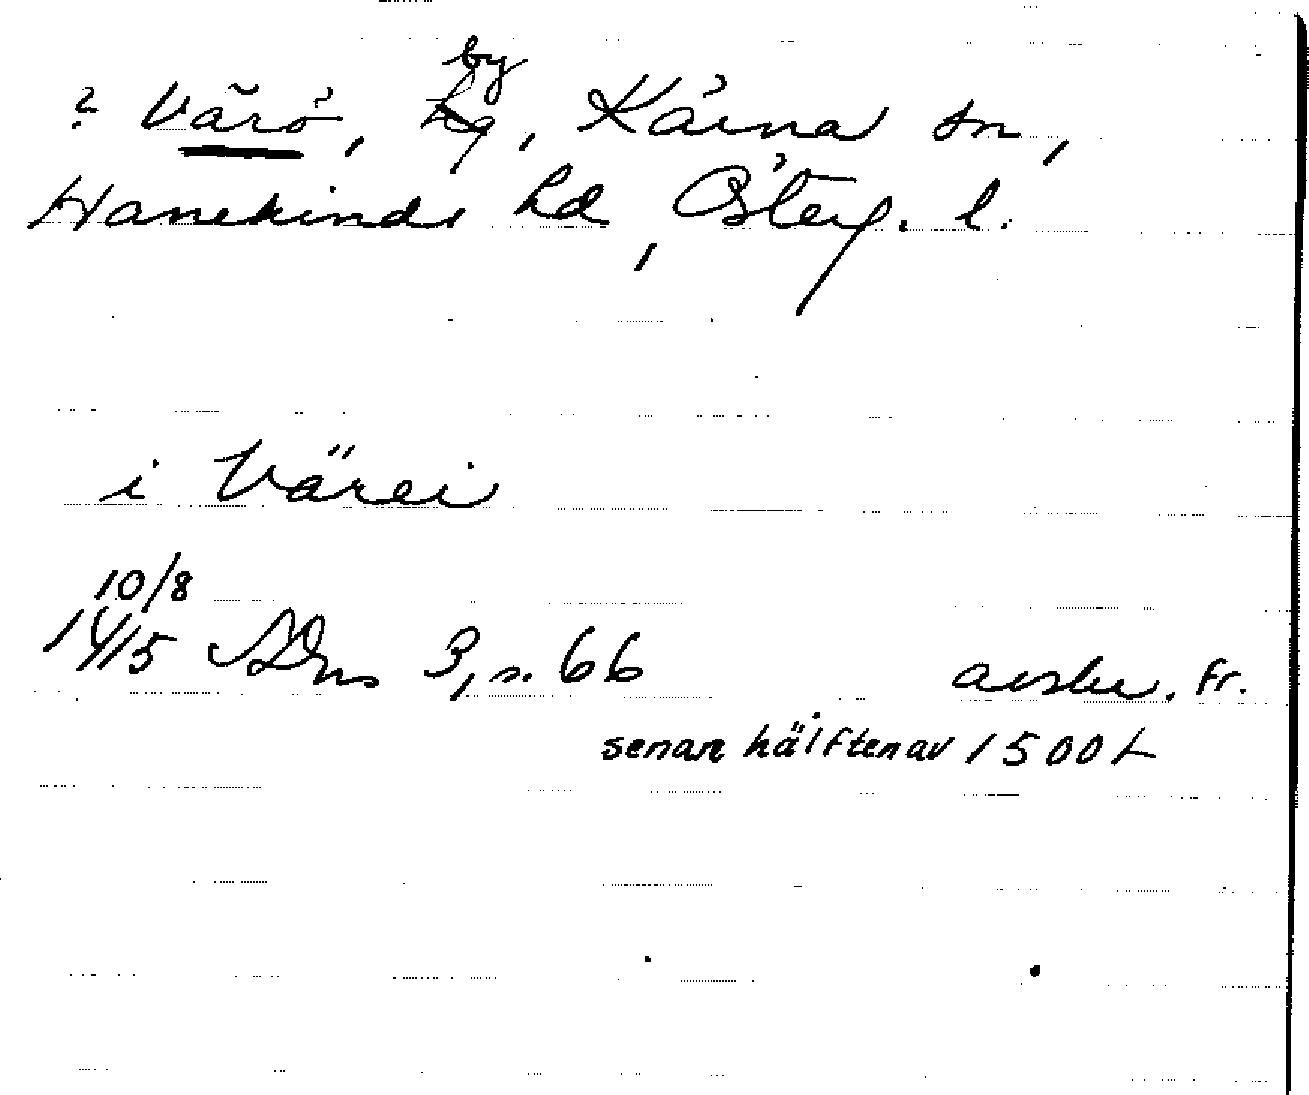 ? Värö, by, Kärna sn,
Hanekinds hd, Österg. l.
i Värei
10/8
1415 ADns 3, s. 66 avskr. fr.
senare hälften av 1500t